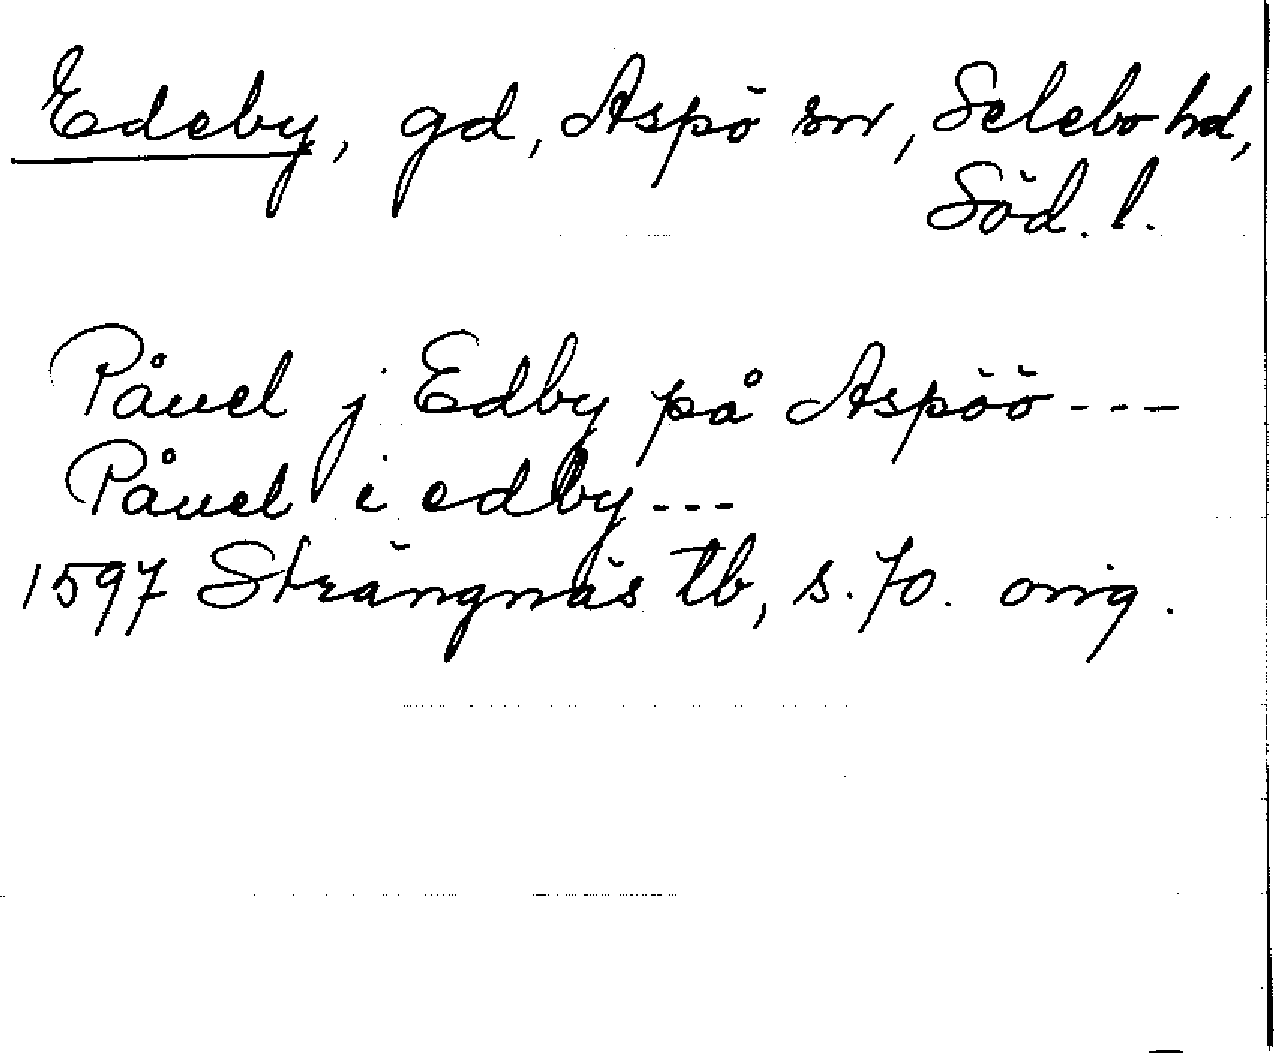 Edeby, gd, Aspö sn, Selebo hd,
Söd. l.
Påuel j Edby på Aspöö ---
Påuel i edby ---
1597 Strängnäs tb, s. 70. orig.